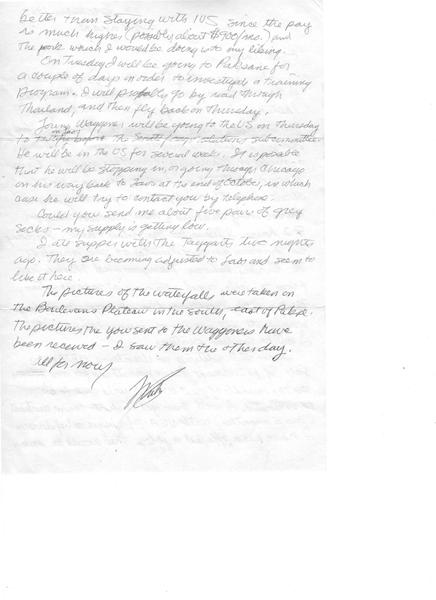 better than staying with IVS since the pay
is much higher (possibly about $900/mo.) and
the work which I would be doing is to my liking.
On Tuesday I will be going to Paksane for
a couple of days in order to investigate a training
program. I will probably go by road through
Thailand, and then fly back on Thursday.
Waggoner will be going to the US on Thursday
to testify before on Laos the subcommittee.
He will be in the US for several weeks. It is possible
that he will be stopping in, or going through Chicago
on his way back to Laos at the end of October, in which
case he will try to contact you by telephone.
Could you send me about five pairs of grey
socks - my supply is getting low.
I ate supper with the Taggarts two nights
ago. They are becoming adjusted to Laos and seem to
like it here.
The pictures of the waterfalls were taken on
the Boulevans Plateau in the south, east of Pakse.
The pictures the you sent to the Waggoners have
been received - I saw them the other day.
All for now,